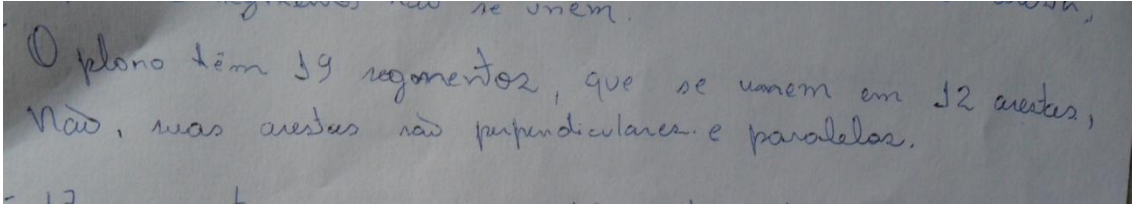 se unem.
O plano têm 19 segmentos, que se unem em 12 arestas,
Não, suas arestas são perpendiculares e paralelas.